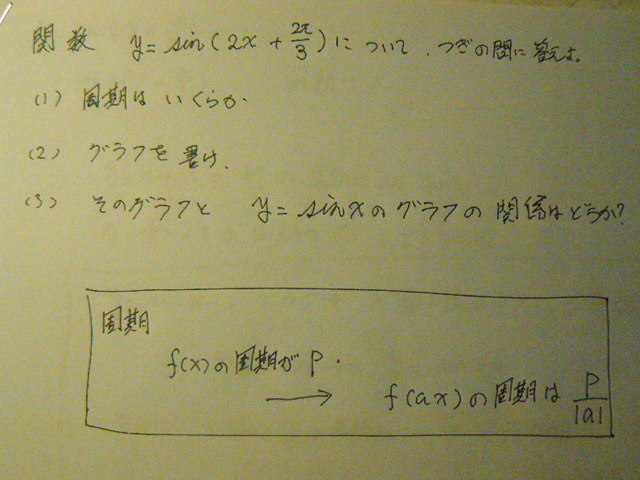 関数 y=sin(2x+2π/3)について、つぎの問に答えよ。
(1) 周期はいくらか.
(2) グラフを書け.
(3) そのグラフと y=sinxのグラフの関係はどうか?
周期
f(x)の周期がP.
→ f(ax)の周期は P/|a|